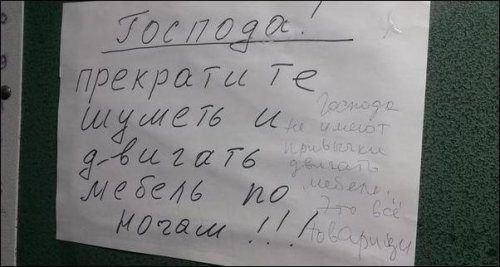 Господа!
прекратите
шуметь и
двигать
мебель по
ночам!!!
Господа
не имеют
привычки
двигать
мебель.
Это всё
товарищи